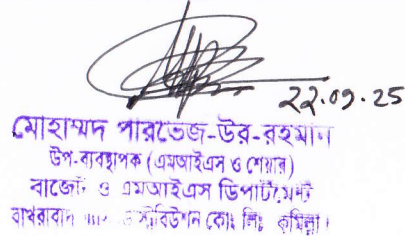 ২২.০৭.25
মোহাম্মদ পারভেজ-উর-রহমান
উপ-ব্যবস্থাপক (এমআইএস ও শেয়ার)
বাজেট ও এমআইএস ডিপার্টমেন্ট
বাখরাবাদ ডিস্ট্রিবিউশন কোঃ লিঃ কুমিল্লা।